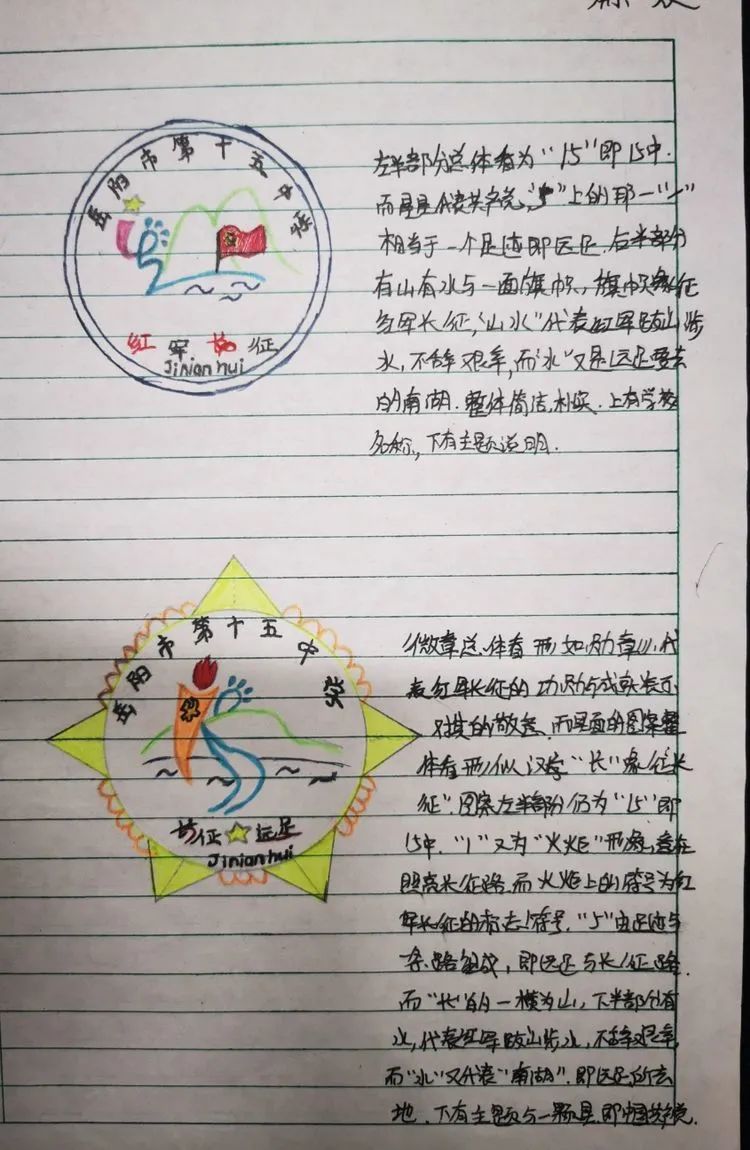 岳阳市第十五中学
红军长征
Jinianhui
左半部分总体看为“15”即15中.
而星星代表共产党,“5”上的那一“一”
相当于一个足迹即远足.右半部分
有山有水与一面旗帜,旗帜象征
红军长征,“山水”代表红军跋山涉
水,不辞艰辛,而“水”又是远足要去
的南湖.整体简洁,朴实.上有学校
名称,下有主题说明.
岳阳市第十五中学
长征☆远足
Jinianhui
徽章总体看形如勋章,代
表红军长征的功勋与成就表示
对其的敬意.而里面的图案整
体看形似汉字“长”象征长
征”图案左半部分仍为“15”即
15中.“1”又为“火炬”形象,意在
照亮长征路.而火炬上的符号为红
军长征的标志符号.“5”由足迹与
条路组成,即远足与长征路.
而“长”的一横为山,下半部分有
水,代表红军跋山涉水,不辞艰辛
而“水”又代表“南湖”.即远足所去
地.下有主题与一颗星.即中国共产党.